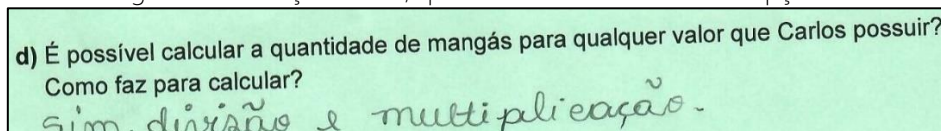 d) É possível calcular a quantidade de mangás para qualquer valor que Carlos possuir?
Como faz para calcular?
sim, divisão e multiplicação.